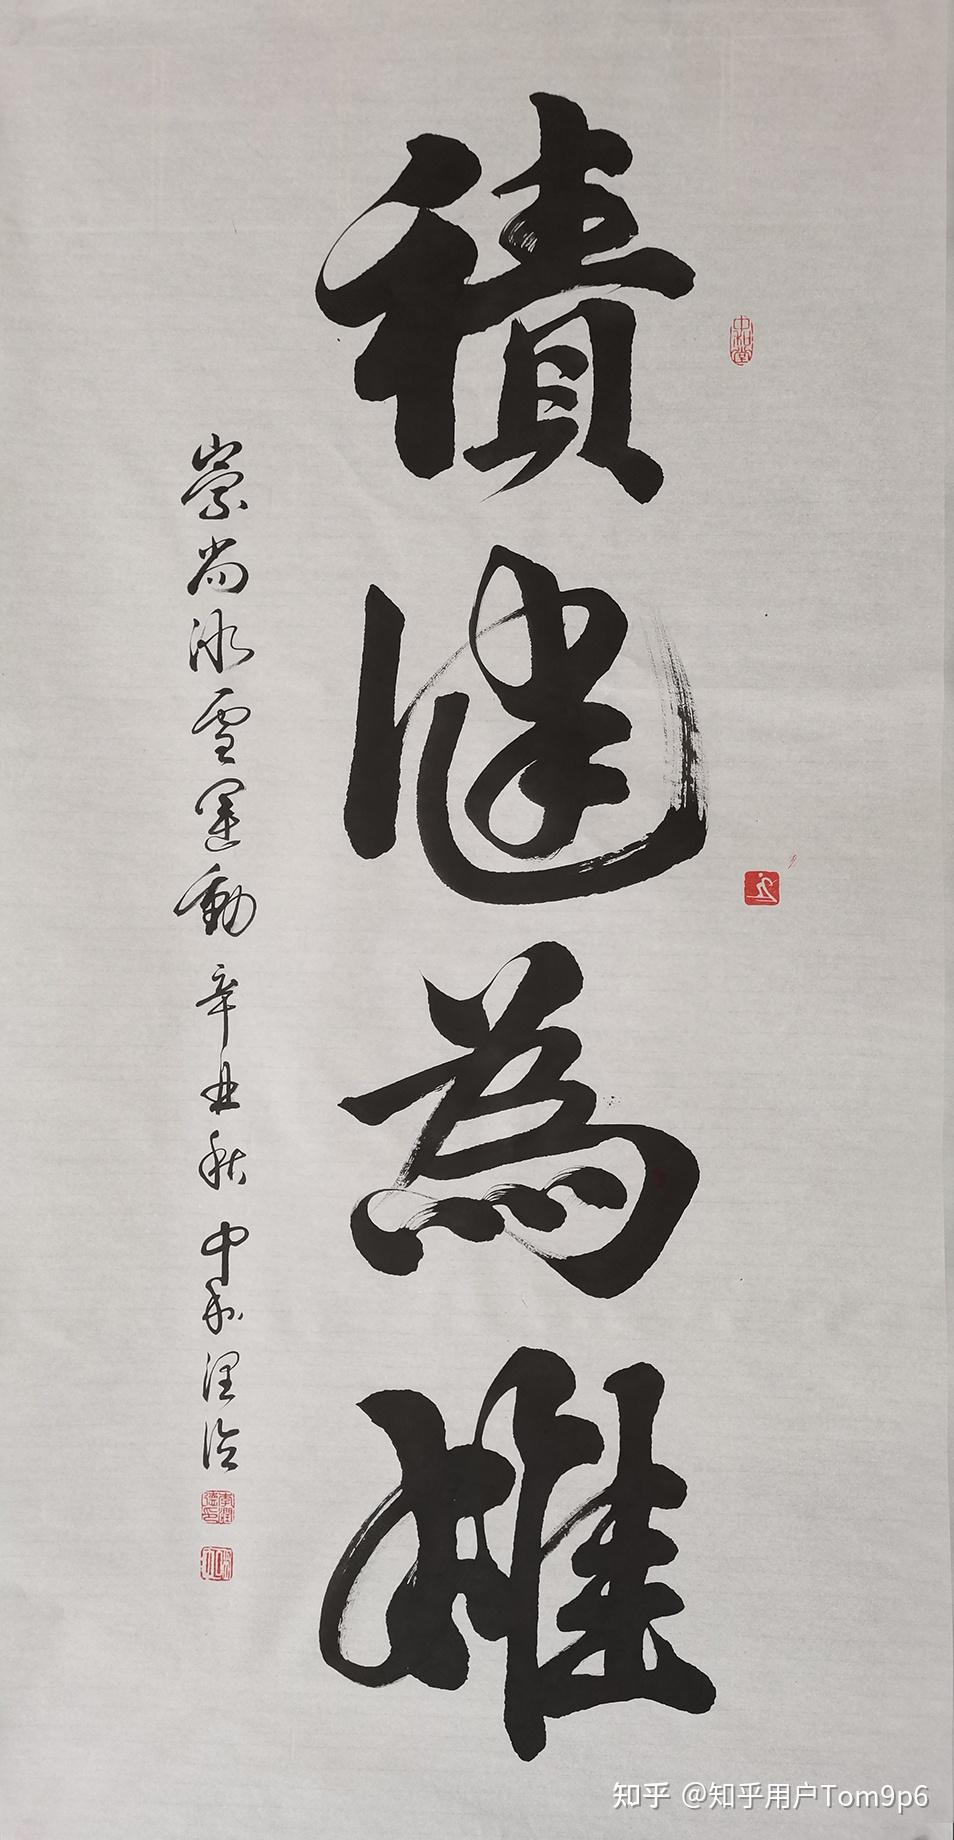 積健為雄
崇尚冰雪運動 辛丑秋 中和 潤德
中和堂
知乎 @知乎用户Tom9p6